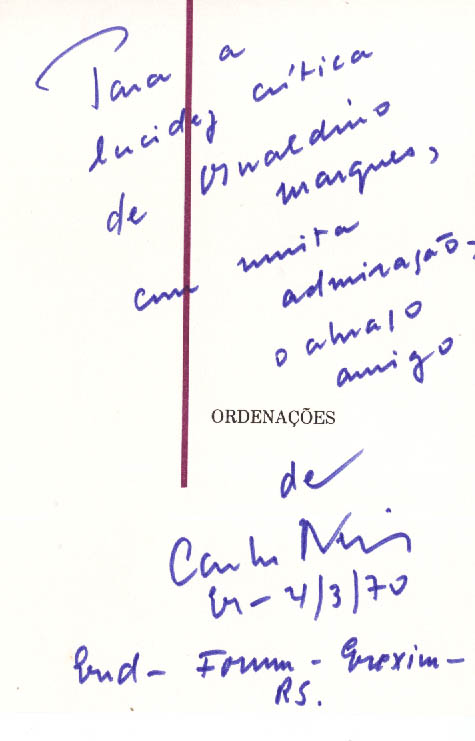 Para a
lucidez crítica
de Oswaldino
marques,
com muita
admiração,
o abraço
amigo
ORDENAÇÕES
de
Carlos Nejar
4/3/70
End - Forum - Erexim -
RS.